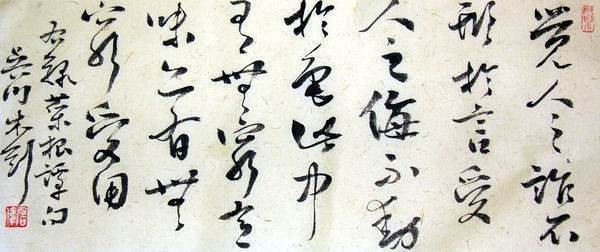 覺人之詐不
形於言受
人之侮不動
於色此中
有無窮意
味亦有無
窮受用
右錄菜根譚句